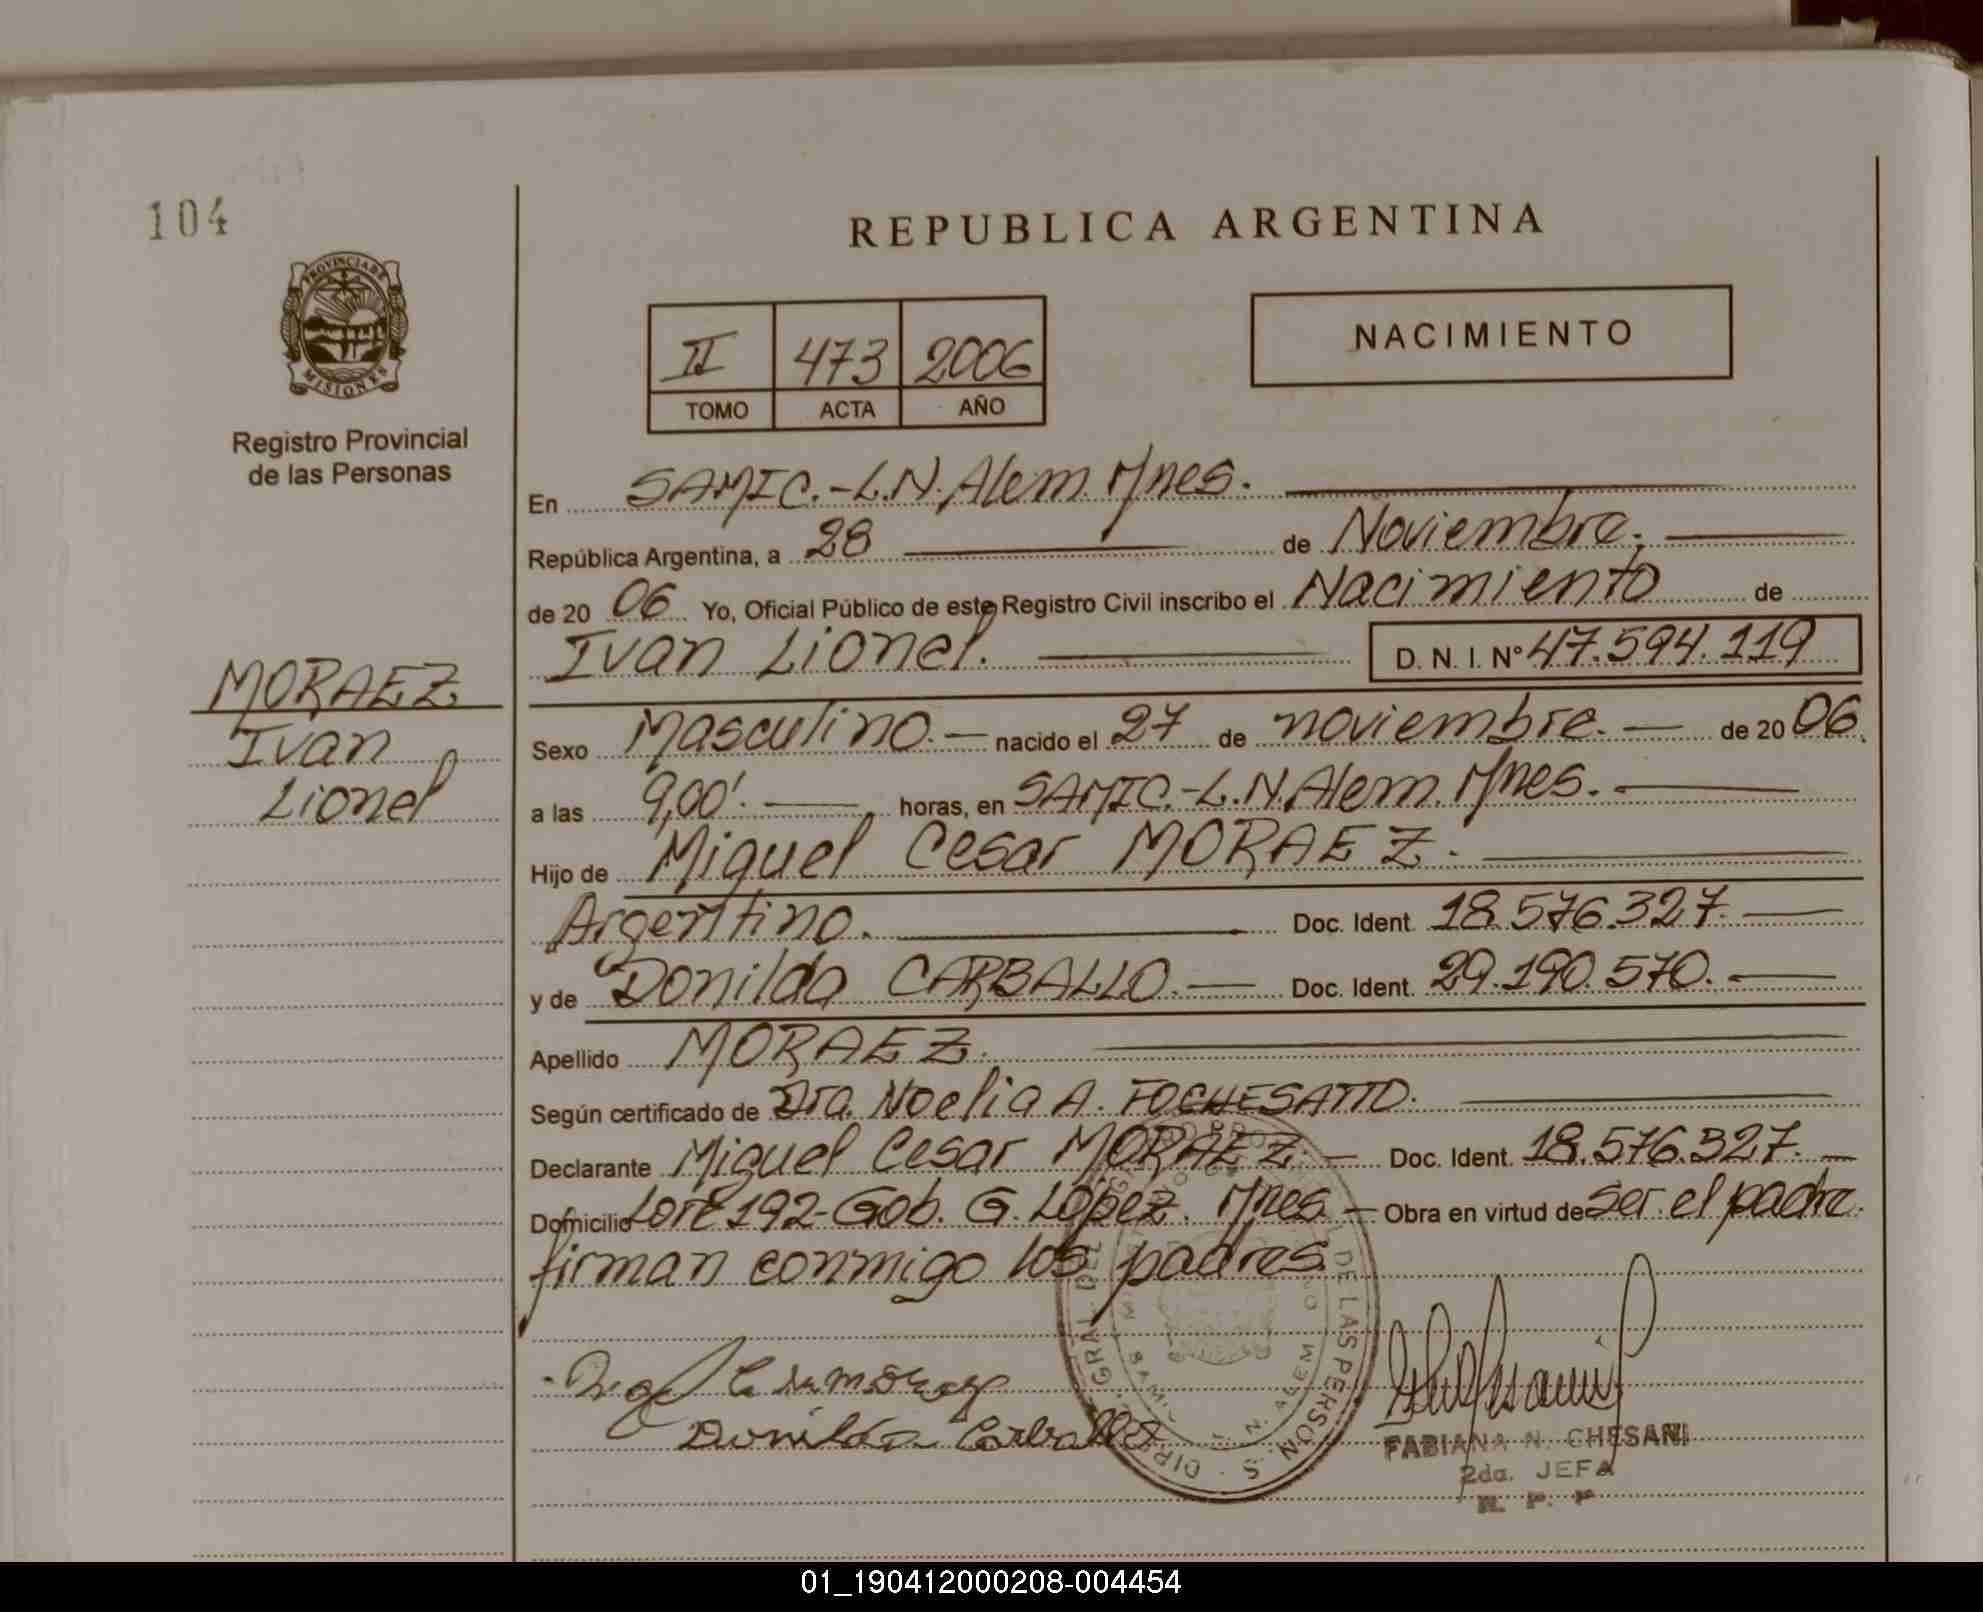 104
REPUBLICA ARGENTINA
PROVINCIA DE
MISIONES
Registro Provincial
de las Personas
II 473 2006
TOMO ACTA AÑO
NACIMIENTO
En SAMIC.-L.N.Alem. Mnes.
República Argentina, a 28 de Noviembre.
de 20 06 Yo, Oficial Público de este Registro Civil inscribo el Nacimiento de
Ivan Lionel. D. N. I. Nº 47.594.119
MORAEZ
Ivan
Lionel
Sexo Masculino.- nacido el 27 de noviembre. de 20 06.
a las 9,00'. horas, en SAMIC.-L.N.Alem. Mnes.
Hijo de Miguel Cesar MORAEZ.
Argentino. Doc. Ident. 18.576.327.
y de Donilda CARBALLO. Doc. Ident. 29.190.570.
Apellido MORAEZ.
Según certificado de Dra. Noelia A. FOCHESATTO.
Declarante Miguel Cesar MORAEZ. Doc. Ident. 18.576.327.
Domicilio Lote 192-Gob. G. López. Mnes. Obra en virtud de ser el padre.
firman conmigo los padres.
Donilda Carballo
FABIANA N. CHESANI
2da. JEFA
R. P. P
01_190412000208-004454